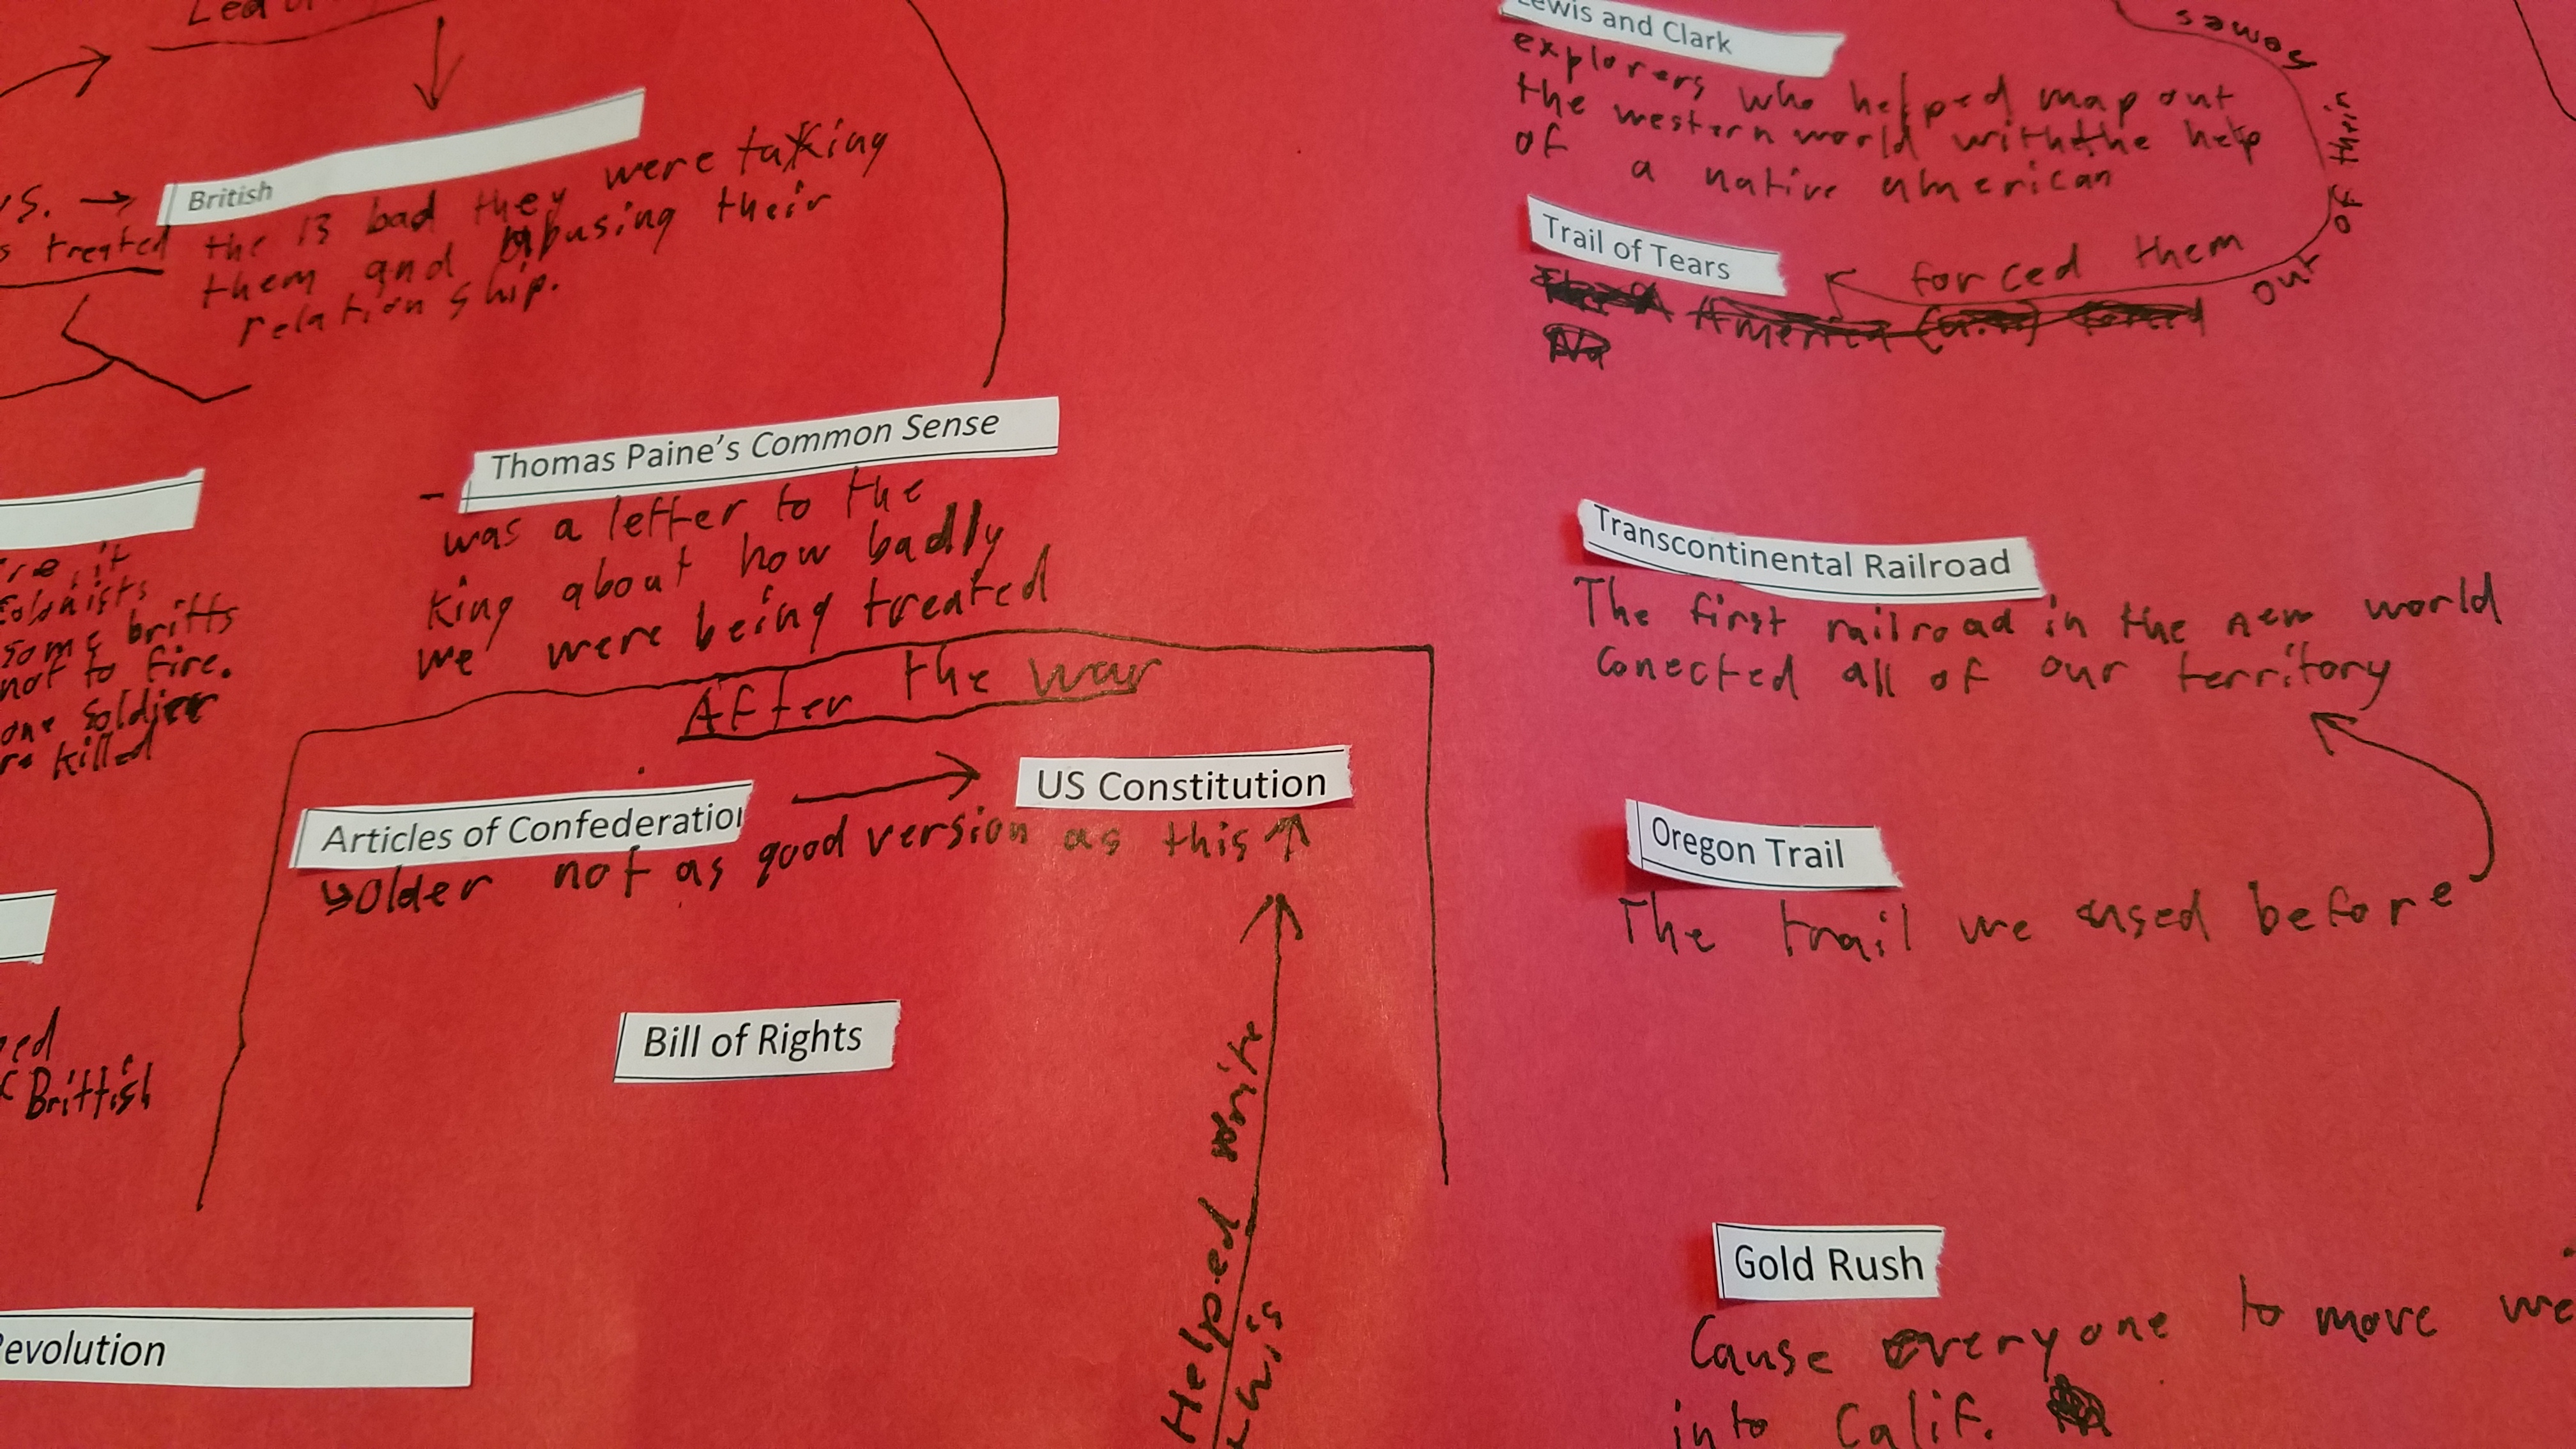 Led
British
vs. →
s treated the 13 bad they were taking
them and abusing their
relation ship.
Thomas Paine's Common Sense
- was a letter to the
King about how badly
we were being treated
it
colonists
some britts
not to fire.
one soldier
killed
After the war
Articles of Confederation
US Constitution
↳ Older not as good version as this ↑
Bill of Rights
Helped write
this
Brittish
Revolution
Lewis and Clark
explorers who helped map out
the western world with the help
of a native american
Trail of Tears
forced them
out
of their
homes
America
Transcontinental Railroad
The first railroad in the new world
conected all of our territory
Oregon Trail
The trail we used before
Gold Rush
Cause everyone to move we
into Calif.